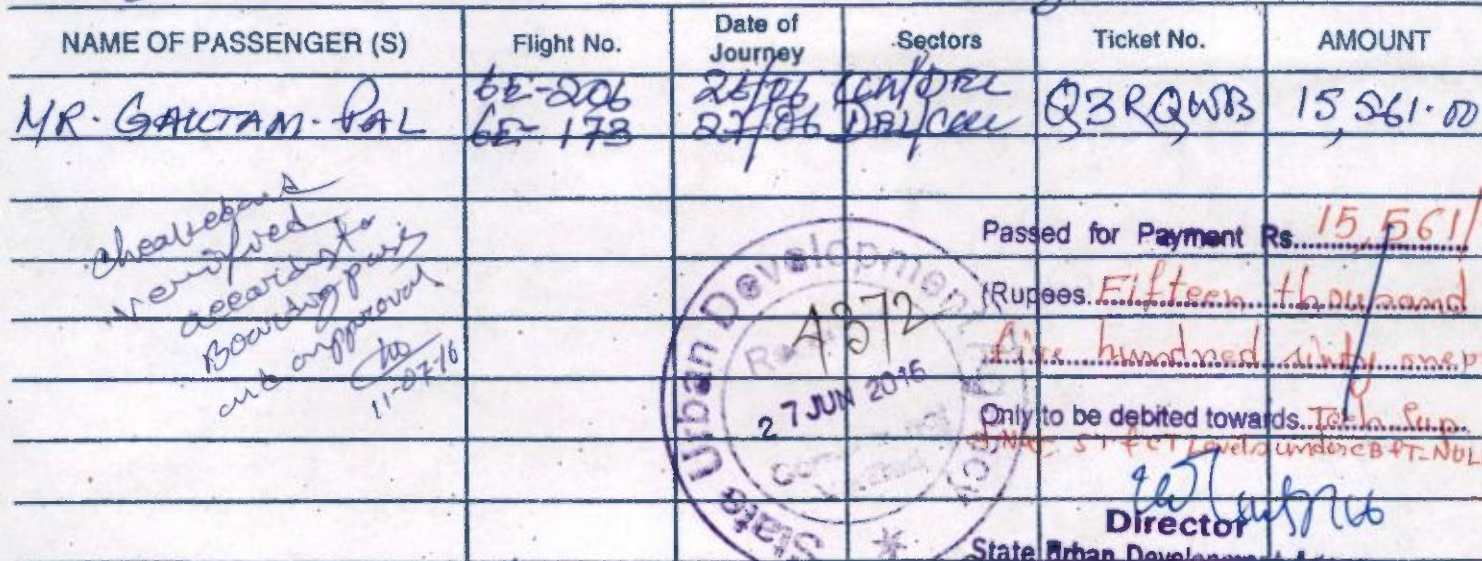 NAME OF PASSENGER (S) Flight No. Date of Journey Sectors Ticket No. AMOUNT
MR. GAUTAM. PAL 6E-206 26/06 CCU/DEL Q3RQWB 15,561.00
6E-173 27/06 DEL/CCU
verified
according to
Boarding pass
and approval
11-07-16
State Urban Development Agency
4372
27 JUN 2016
Passed for Payment Rs. 15,561/
(Rupees. Fifteen thousand
five hundred sixty one
Only to be debited towards. Tech Sup.
ST & CT Levels under CB &T-NUL
Director
State Urban Development